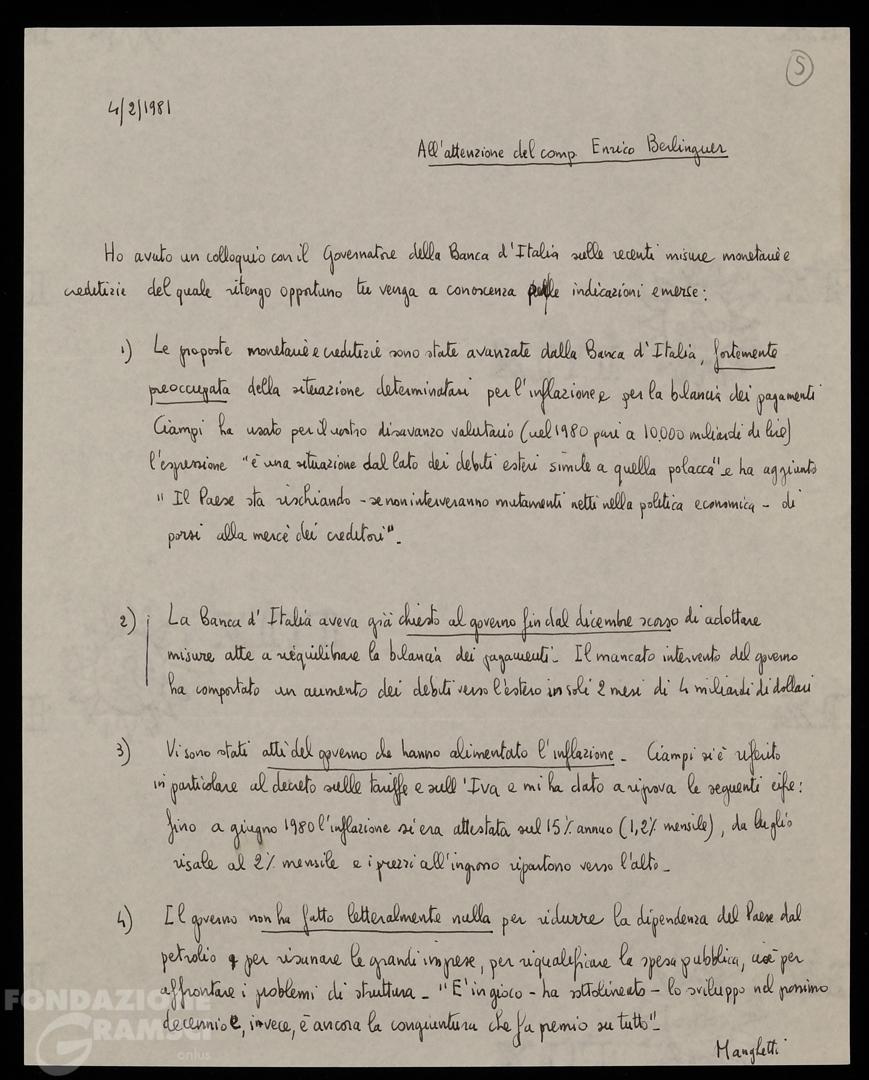 5
4/2/1981
All'attenzione del comp. Enrico Berlinguer
Ho avuto un colloquio con il Governatore della Banca d'Italia sulle recenti misure monetarie e
creditizie del quale ritengo opportuno tu venga a conoscenza le indicazioni emerse:
1) Le proposte monetarie e creditizie sono state avanzate dalla Banca d'Italia, fortemente
preoccupata della situazione determinatasi per l'inflazione e per la bilancia dei pagamenti
Ciampi ha usato per il nostro disavanzo valutario (nel 1980 pari a 10.000 miliardi di lire)
l'espressione "è una situazione dal lato dei debiti esteri simile a quella polacca" e ha aggiunto
"Il Paese sta rischiando - se non interveranno mutamenti netti nella politica economica - di
porsi alla mercè dei creditori".
2) La Banca d'Italia aveva già chiesto al governo fin dal dicembre scorso di adottare
misure atte a riequilibrare la bilancia dei pagamenti. Il mancato intervento del governo
ha comportato un aumento dei debiti verso l'estero in soli 2 mesi di 4 miliardi di dollari
3) Vi sono stati atti del governo che hanno alimentato l'inflazione. Ciampi si è riferito
in particolare al decreto sulle tariffe e sull'Iva e mi ha dato a riprova le seguenti cifre:
fino a giugno 1980 l'inflazione si era attestata sul 15% annuo (1,2% mensile), da luglio
risale al 2% mensile e i prezzi all'ingrosso ripartono verso l'alto.
4) Il governo non ha fatto letteralmente nulla per ridurre la dipendenza del Paese dal
petrolio per risanare le grandi imprese, per riqualificare la spesa pubblica, cioè per
affrontare i problemi di struttura. "E' in gioco - ha sottolineato - lo sviluppo nel prossimo
decennio e, invece, è ancora la congiuntura che fa premio su tutto".
Manghetti
FONDAZIONE
GRAMSCI
onlus